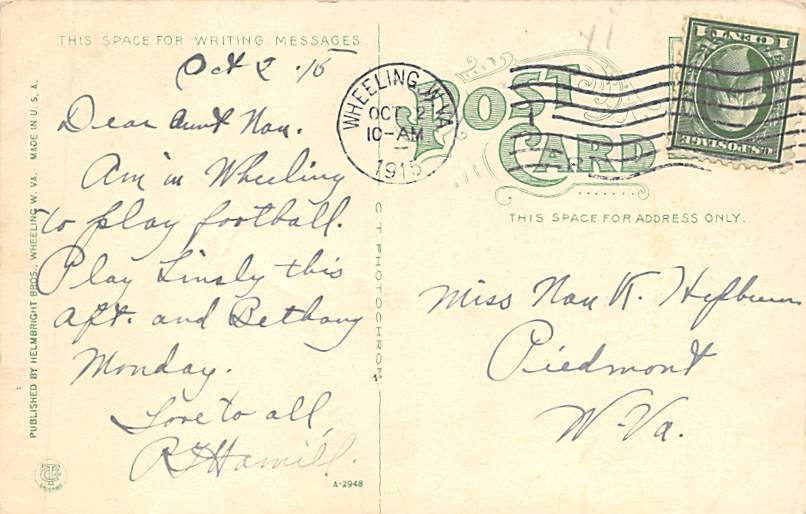 THIS SPACE FOR WRITING MESSAGES
Oct 2 '15
Dear Aunt Nan.
Am in Wheeling
to play football.
Play Linsly this
Aft. and Bethany
Monday.
Love to all,
R T Hamill.
PUBLISHED BY HELMBRIGHT BROS. WHEELING W. VA. MADE IN U. S. A.
A-2948
C T PHOTOCHROM
WHEELING W.VA.
OCT 2
10-AM
1915
POST
CARD
1 CENT 1
U.S. POSTAGE
THIS SPACE FOR ADDRESS ONLY.
Miss Nan K. Hepburn
Piedmont
W-Va.